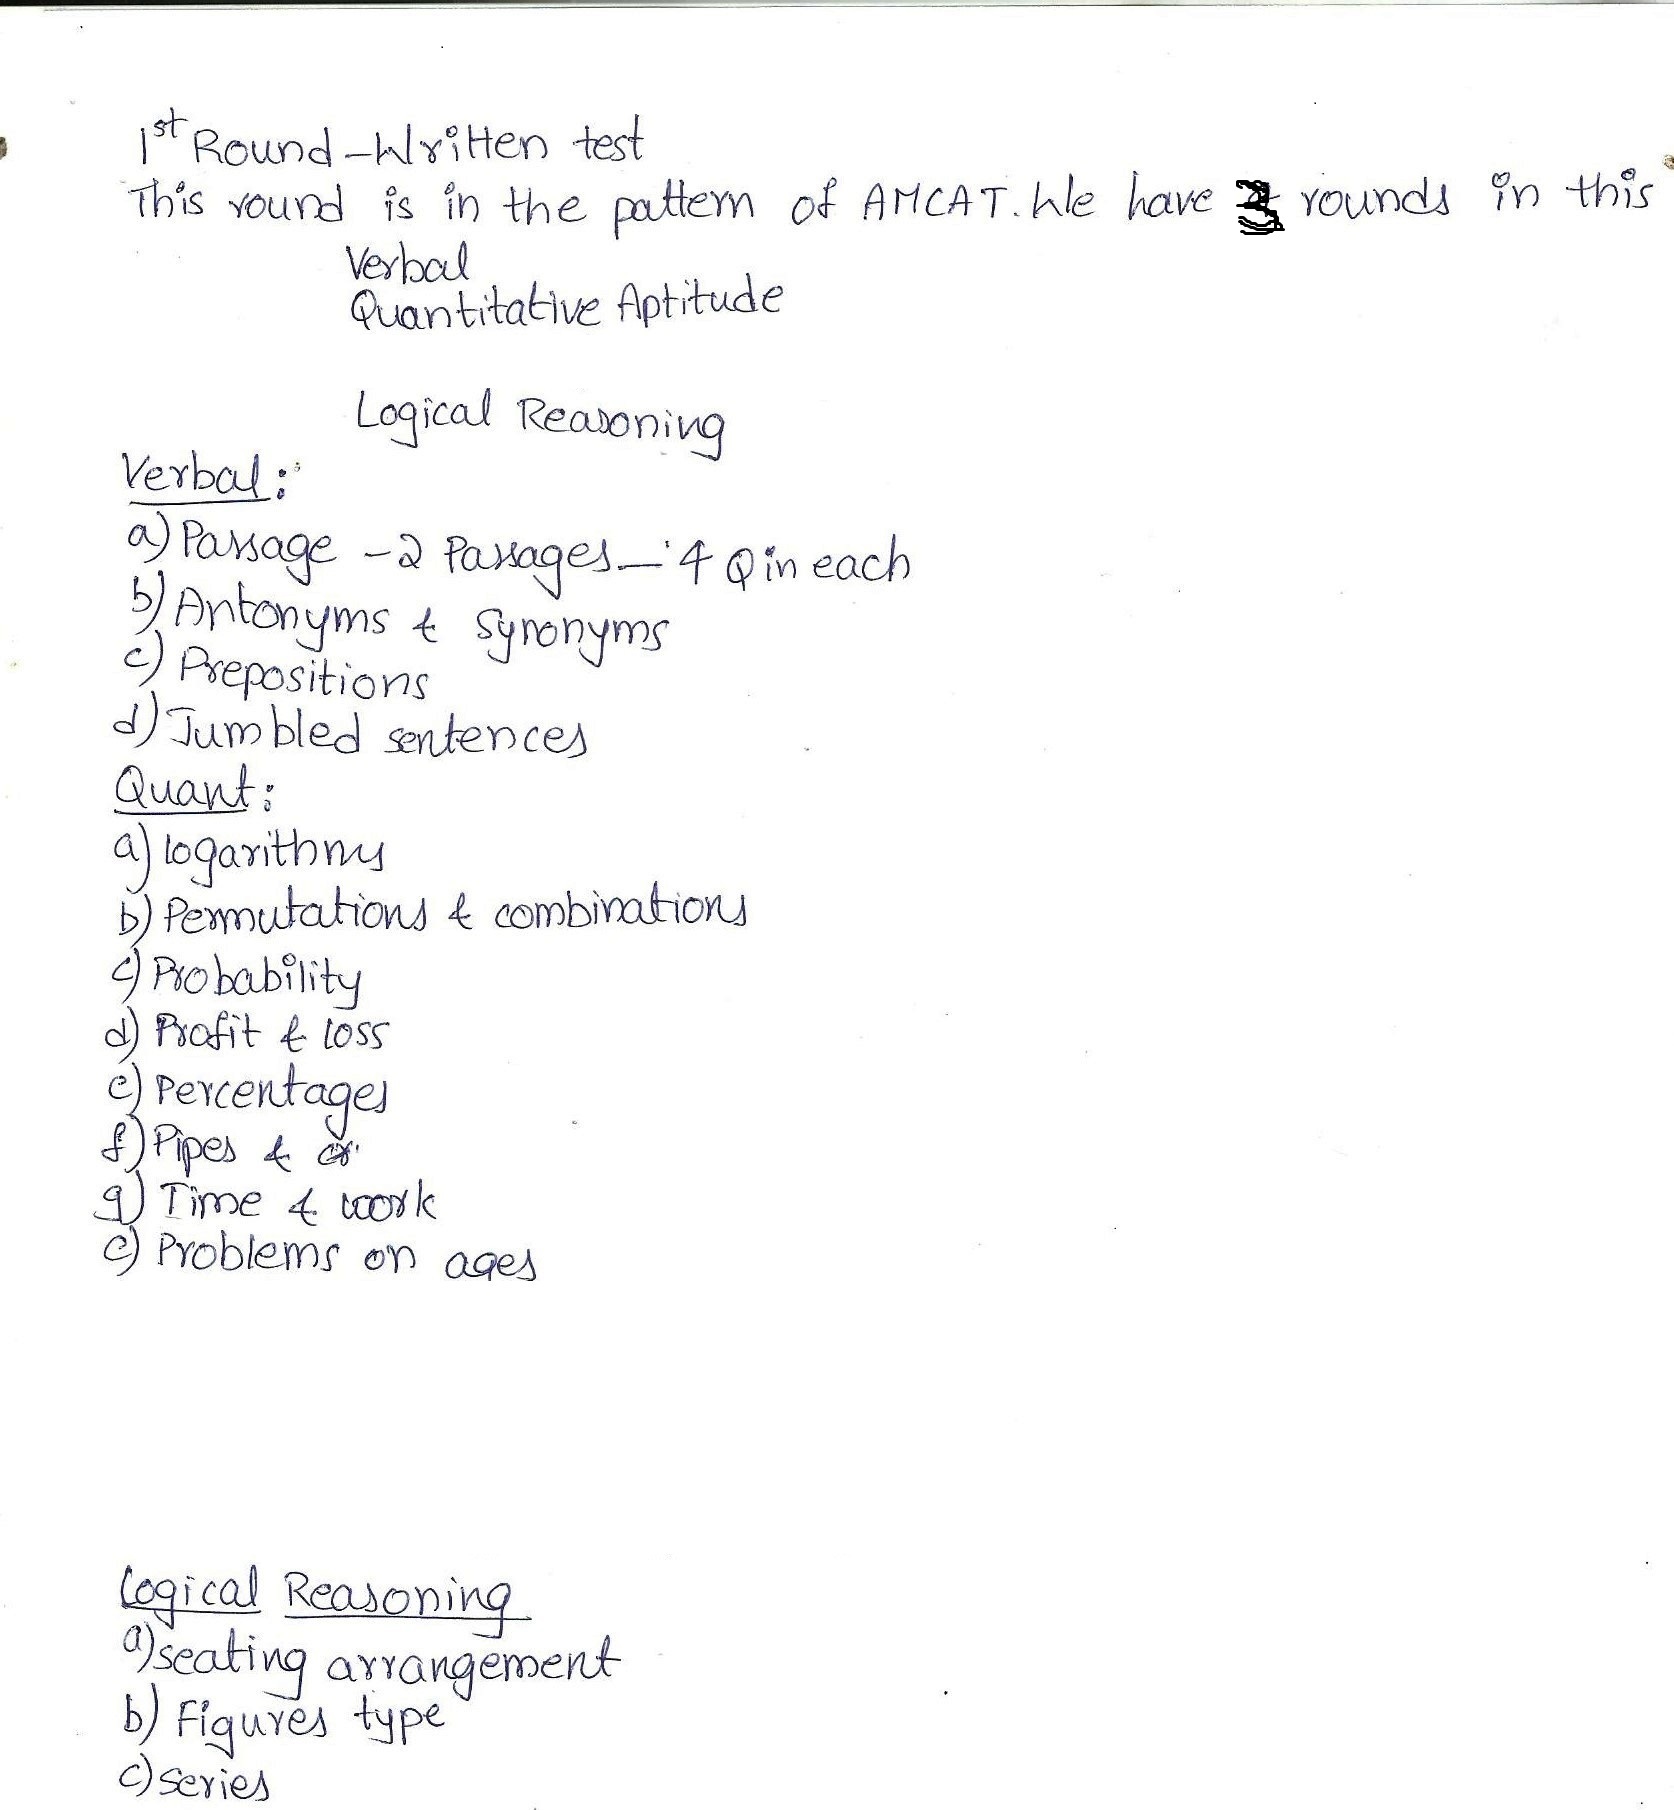 1st Round - Written test
This round is in the pattern of AMCAT. We have 3 rounds in this
Verbal
Quantitative Aptitude
Logical Reasoning
Verbal:
a) Passage - 2 Passages - 4 Q in each
b) Antonyms & Synonyms
c) Prepositions
d) Jumbled sentences
Quant:
a) logarithms
b) Permutations & combinations
c) Probability
d) Profit & loss
e) Percentages
f) Pipes &
g) Time & work
e) Problems on ages
Logical Reasoning
a) seating arrangement
b) Figures type
c) series